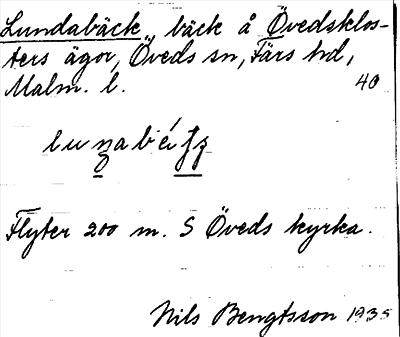 Lundabäck, bäck å Övedsklos-
ters ägor, Öveds sn, Färs hd,
Malm. l. 40
Flyter 200 m. S Öveds kyrka.
Nils Bengtsson 1935